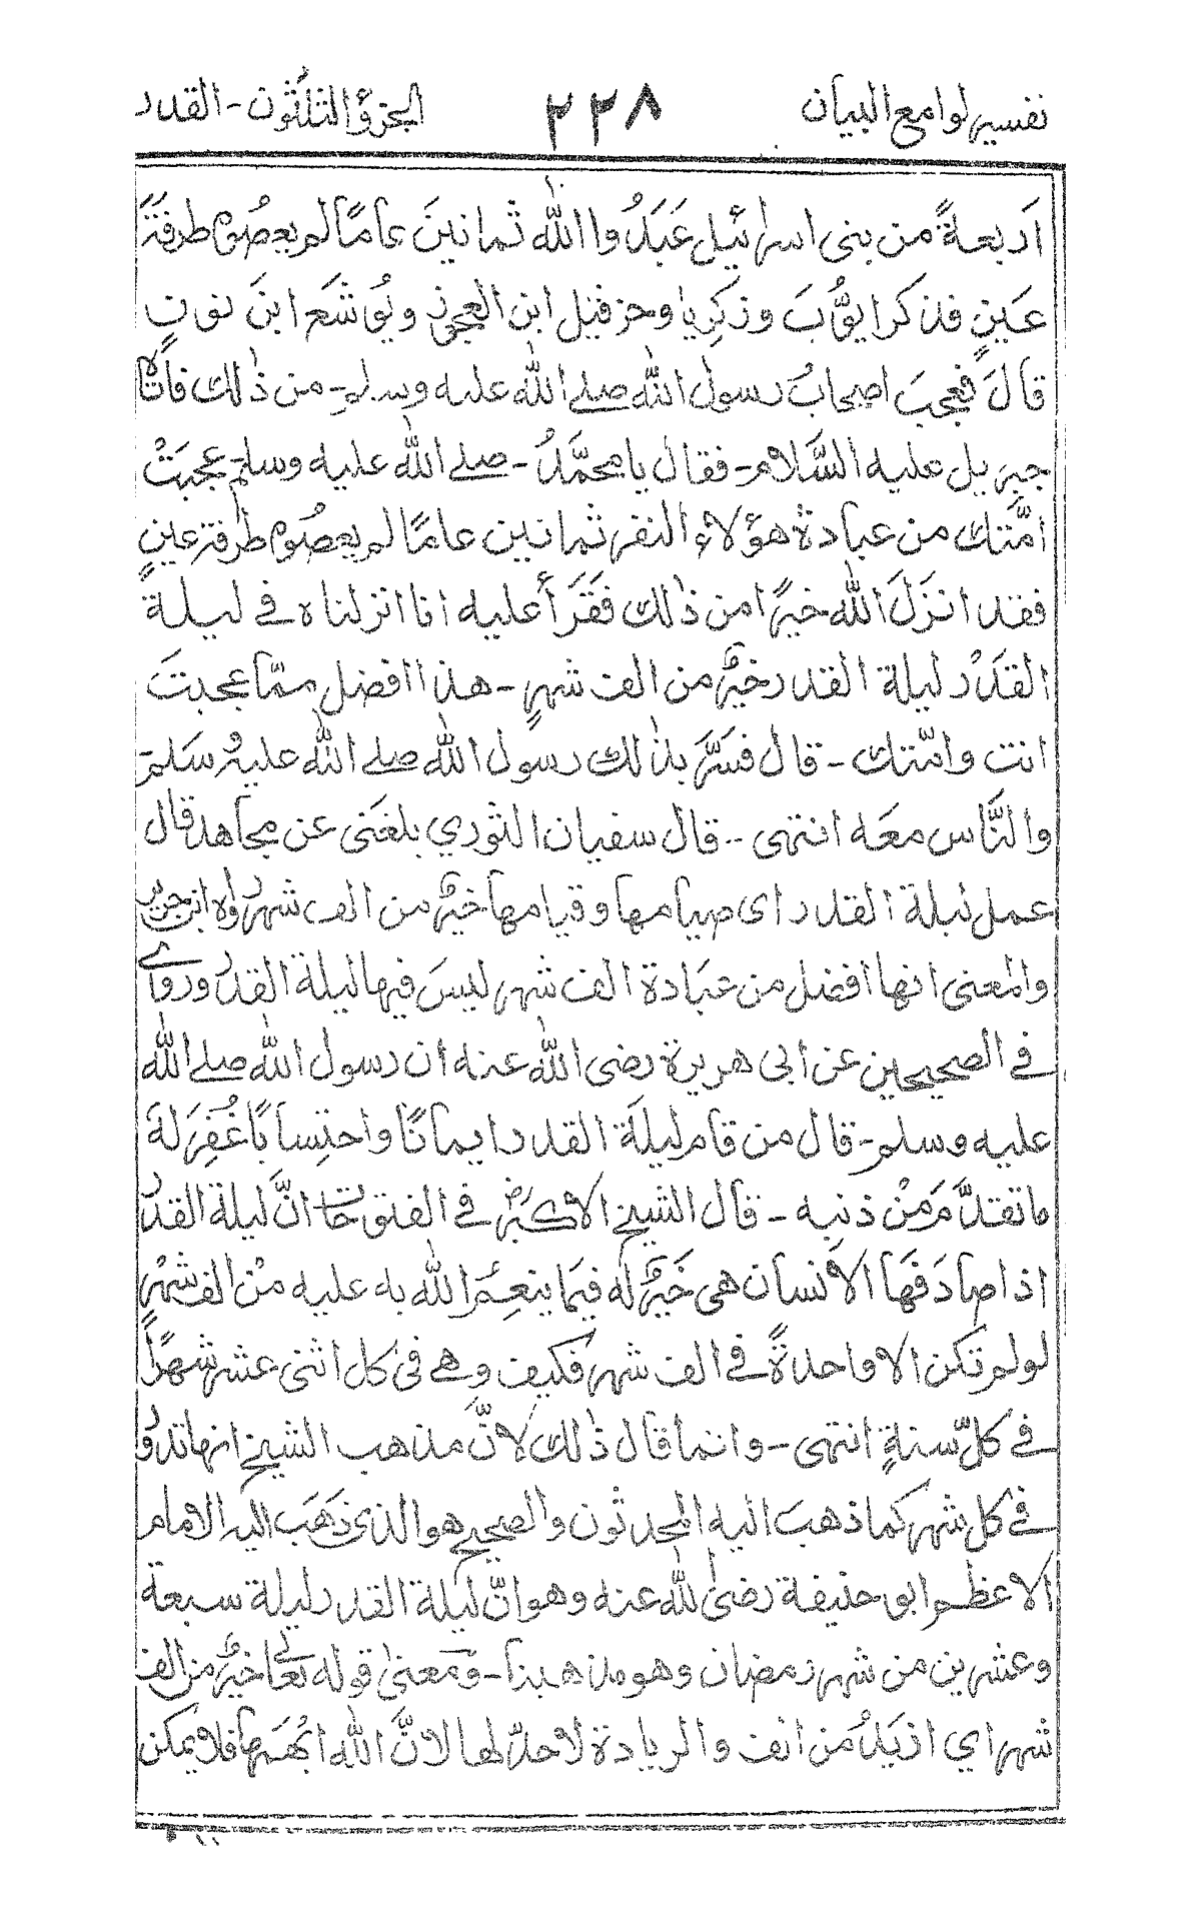 تفسير لوامع البيان ٢٢٨ الجزؤ الثلثون - القدر
اَربعةً من بنى اسرائيل عَبَدُوا اللّٰه ثمانينَ عامًا لم يعصُوه طرفةَ
عَينٍ فذكر ايوُّبَ وزكرِيا وحزقيل ابن العجوز ويُوشَعَ ابنَ نونٍ
قالَ فعجبَ اصحابُ رسول اللّٰه صلے اللّٰه عليه وسلم - من ذٰلك فاتاه
جبريل عليه السَّلام - فقال يا محمَّدُ - صلے اللّٰه عليه وسلم عجبَتْ
امّتك من عبادة هؤلاء النفر ثمانين عامًا لم يعصُوه طرفة عينٍ
فقد انزَلَ اللّٰه خيرًا من ذٰلك فقَرَأ عليه انا انزلناه فے ليلة
القَدْر ليلة القدر خيرٌ من الف شهرٍ - هذا افضل ممّا عجبتَ
انت وامّتك - قال فسَرَّ بذٰلك رسول اللّٰه صلے اللّٰه عليه وسَلم
والنَّاس معَه انتهى - قال سفيان الثوري بلغَنى عن مجاهد قال
عمل ليلة القدر اى صيامها وقيامها خيرٌ من الف شهر رواه ابن جرير
والمعنى انها افضل من عبَادة الف شهر ليسَ فيها ليلة القدر ورواے
فے الصحيحين عن ابى هريرة رضى اللّٰه عنه ان رسول اللّٰه صلے اللّٰه
عليه وسلم - قال من قام ليلَة القدر ايمانًا واحتِسابًا غُفِرَ لهَ
ما تقدَّم مَنْ ذنبه - قال الشيخ الاكبَرؓ فے الفتوحات انَّ ليلة القدر
اذا صادَفَها الانسان هى خَيرٌ له فيما ينعِم اللّٰه به عليه مْن الف شهْرٍ
لو لم تكن الا واحدةً فے الف شهر فكيف وهے فى كل اثنى عشر شهرًا
فے كلّ سنةٍ انتهى - وانما قال ذٰلك لانَّ مذهب الشيخ انها تدور
فے كل شهر كما ذهبَ اليه المحدثون والصحيح هو الذى ذهَبَ اليه الامام
الاعظم ابو حنيفة رضى اللّٰه عنه وهو انّ ليلة القدر ليلة سبعة
وعشرين من شهر رمضان وهو مذهبنا - ومَعنىٰ قوله تعالے خيرٌ من الف
شهر اي ازيَدُ من الف والزيادة لا حدّ لها لانَّ اللّٰه ابُهَمَها فلا يمكن